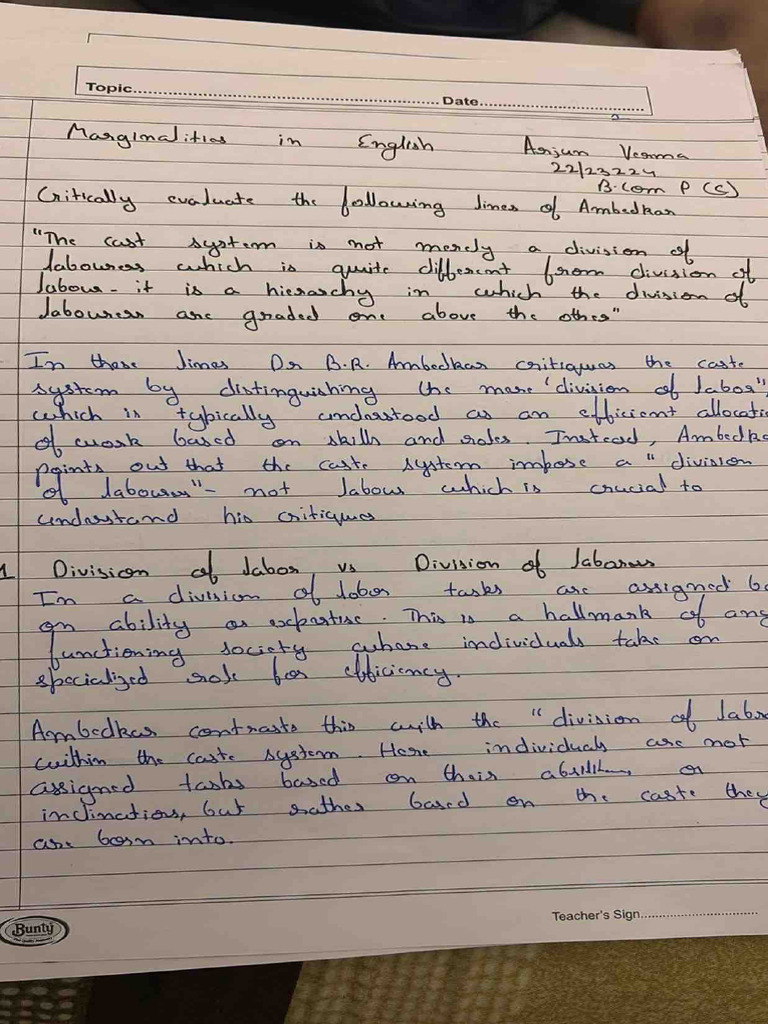 Topic.......................................................... Date..........................................
Marginalities in English Arjun Verma
22/23224
B.Com P (C)
Critically evaluate the following lines of Ambedkar
"The cast system is not merely a division of
labourers which is quite different from division of
labour - it is a hierarchy in which the division of
labourers are graded one above the other"
In these lines Dr B.R. Ambedkar critiques the caste
system by distinguishing the mere 'division of labor",
which is typically understood as an efficient allocati
of work based on skills and roles. Instead, Ambedka
points out that the caste system impose a "division
of labourer" - not labour which is crucial to
understand his critiques
1 Division of labor vs Division of laborers
In a division of labor tasks are assigned ba
on ability or expertise. This is a hallmark of any
functioning society where individuals take on
specialized role for efficiency.
Ambedkar contrasts this with the "division of labr
within the caste system. Here individuals are not
assigned tasks based on their abilities or
inclinations, but rather based on the caste they
are born into.
Bunty
Teacher's Sign..............................